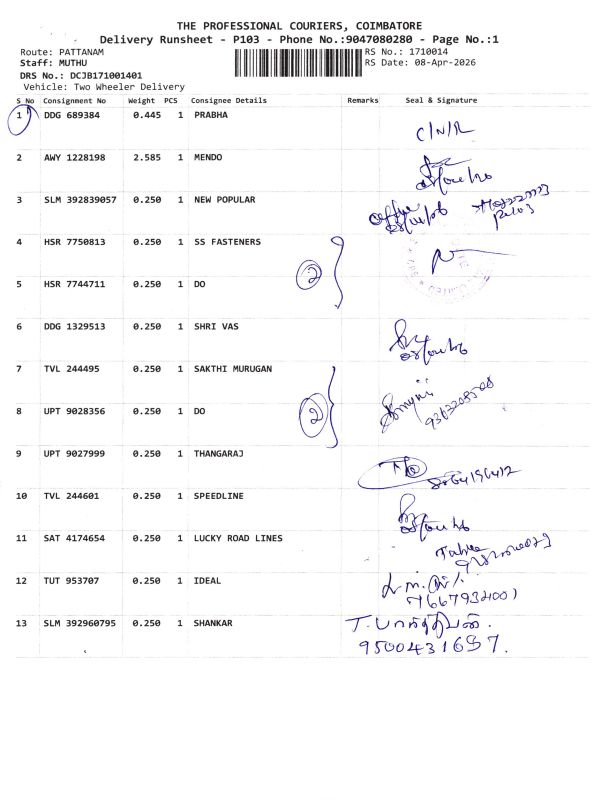 THE PROFESSIONAL COURIERS, COIMBATORE
Delivery Runsheet - P103 - Phone No.:9047080280 - Page No.:1
Route: PATTANAM
RS No.: 1710014
Staff: MUTHU
RS Date: 08-Apr-2026
DRS No.: DCJB171001401
Vehicle: Two Wheeler Delivery
S No Consignment No Weight PCS Consignee Details Remarks Seal & Signature
1 DDG 689384 0.445 1 PRABHA
C/N/R
2 AWY 1228198 2.585 1 MENDO
3 SLM 392839057 0.250 1 NEW POPULAR
4 HSR 7750813 0.250 1 SS FASTENERS
2
5 HSR 7744711 0.250 1 DO
6 DDG 1329513 0.250 1 SHRI VAS
7 TVL 244495 0.250 1 SAKTHI MURUGAN
8 UPT 9028356 0.250 1 DO
2
9 UPT 9027999 0.250 1 THANGARAJ
10 TVL 244601 0.250 1 SPEEDLINE
11 SAT 4174654 0.250 1 LUCKY ROAD LINES
12 TUT 953707 0.250 1 IDEAL
13 SLM 392960795 0.250 1 SHANKAR
9500431697.